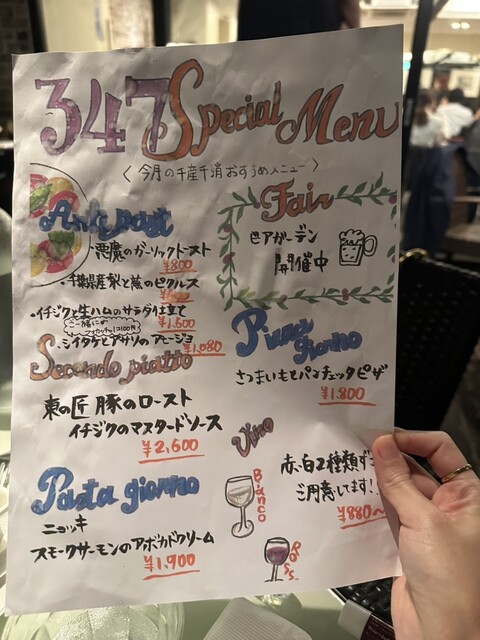 347 Special Menu
〈今月の千産千消おすすめメニュー〉
Antipast
・悪魔のガーリックトースト
¥800
・千葉県産梨と蕪のピクルス
・イチジクと生ハムのサラダ仕立て
¥1,600
ご一緒に
フォカッチャ 1コ100円
・シイタケとアサリのアヒージョ
¥1,080
Secondo piatto
東の匠 豚のロースト
イチジクのマスタードソース
¥2,600
Pasta giorno
ニョッキ
スモークサーモンのアボカドクリーム
¥1,900
Fair
ビアガーデン
開催中
giorno
さつまいもとパンチェッタピザ
¥1,800
Vino
赤、白2種類ずつ
ご用意してます!
¥880〜
Bianco